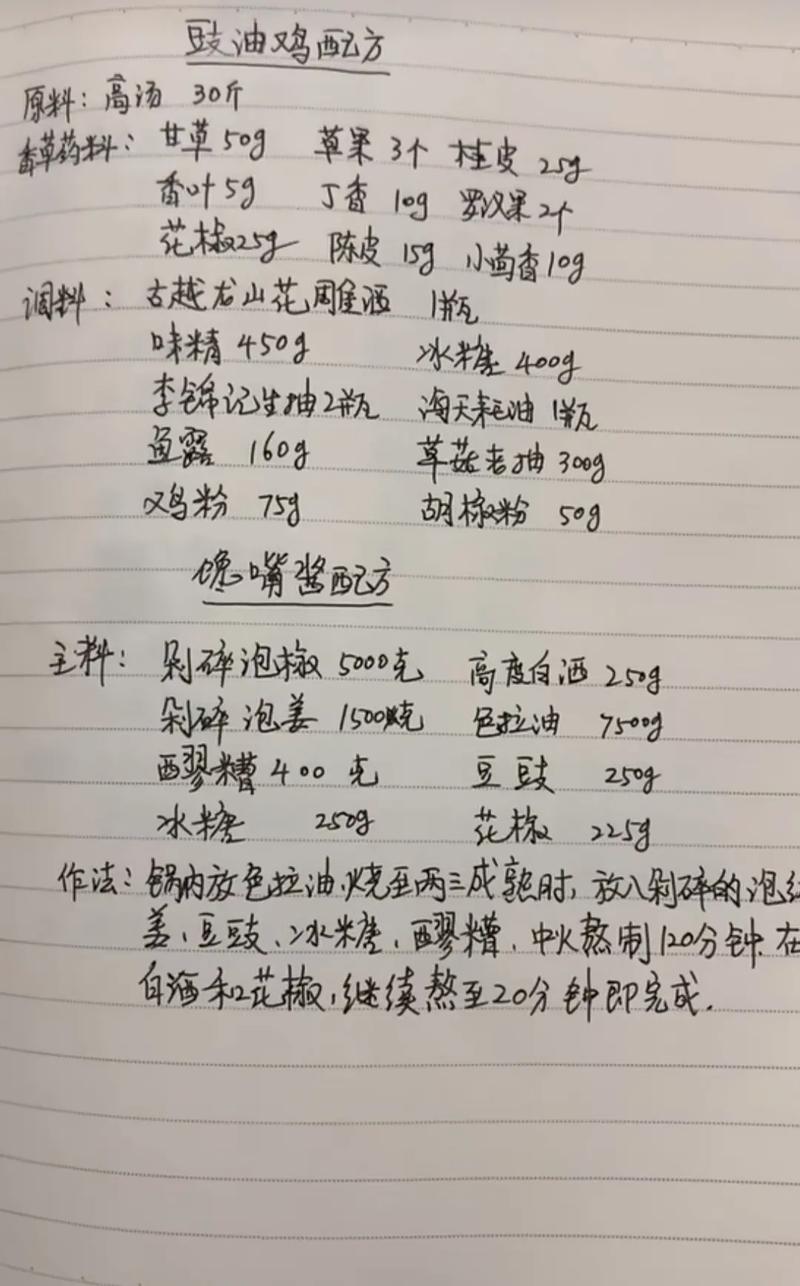 豉油鸡配方
原料：高汤 30斤
香草药料：甘草50g 草果3个 桂皮25g
香叶5g 丁香10g 罗汉果2个
花椒25g 陈皮15g 小茴香10g
调料：古越龙山花雕酒 1瓶
味精450g 冰糖400g
李锦记生抽2瓶 海天耗油1瓶
鱼露160g 草菇老抽300g
鸡粉75g 胡椒粉50g
馋嘴酱配方
主料：剁碎泡椒5000克 高度白酒250g
剁碎泡姜1500克 色拉油7500g
醪糟400克 豆豉250g
冰糖250g 花椒225g
作法：锅内放色拉油,烧至两三成熟时,放八剁碎的泡
姜、豆豉、冰糖、醪糟,中火熬制120分钟.在
白酒和花椒,继续熬至20分钟即完成.